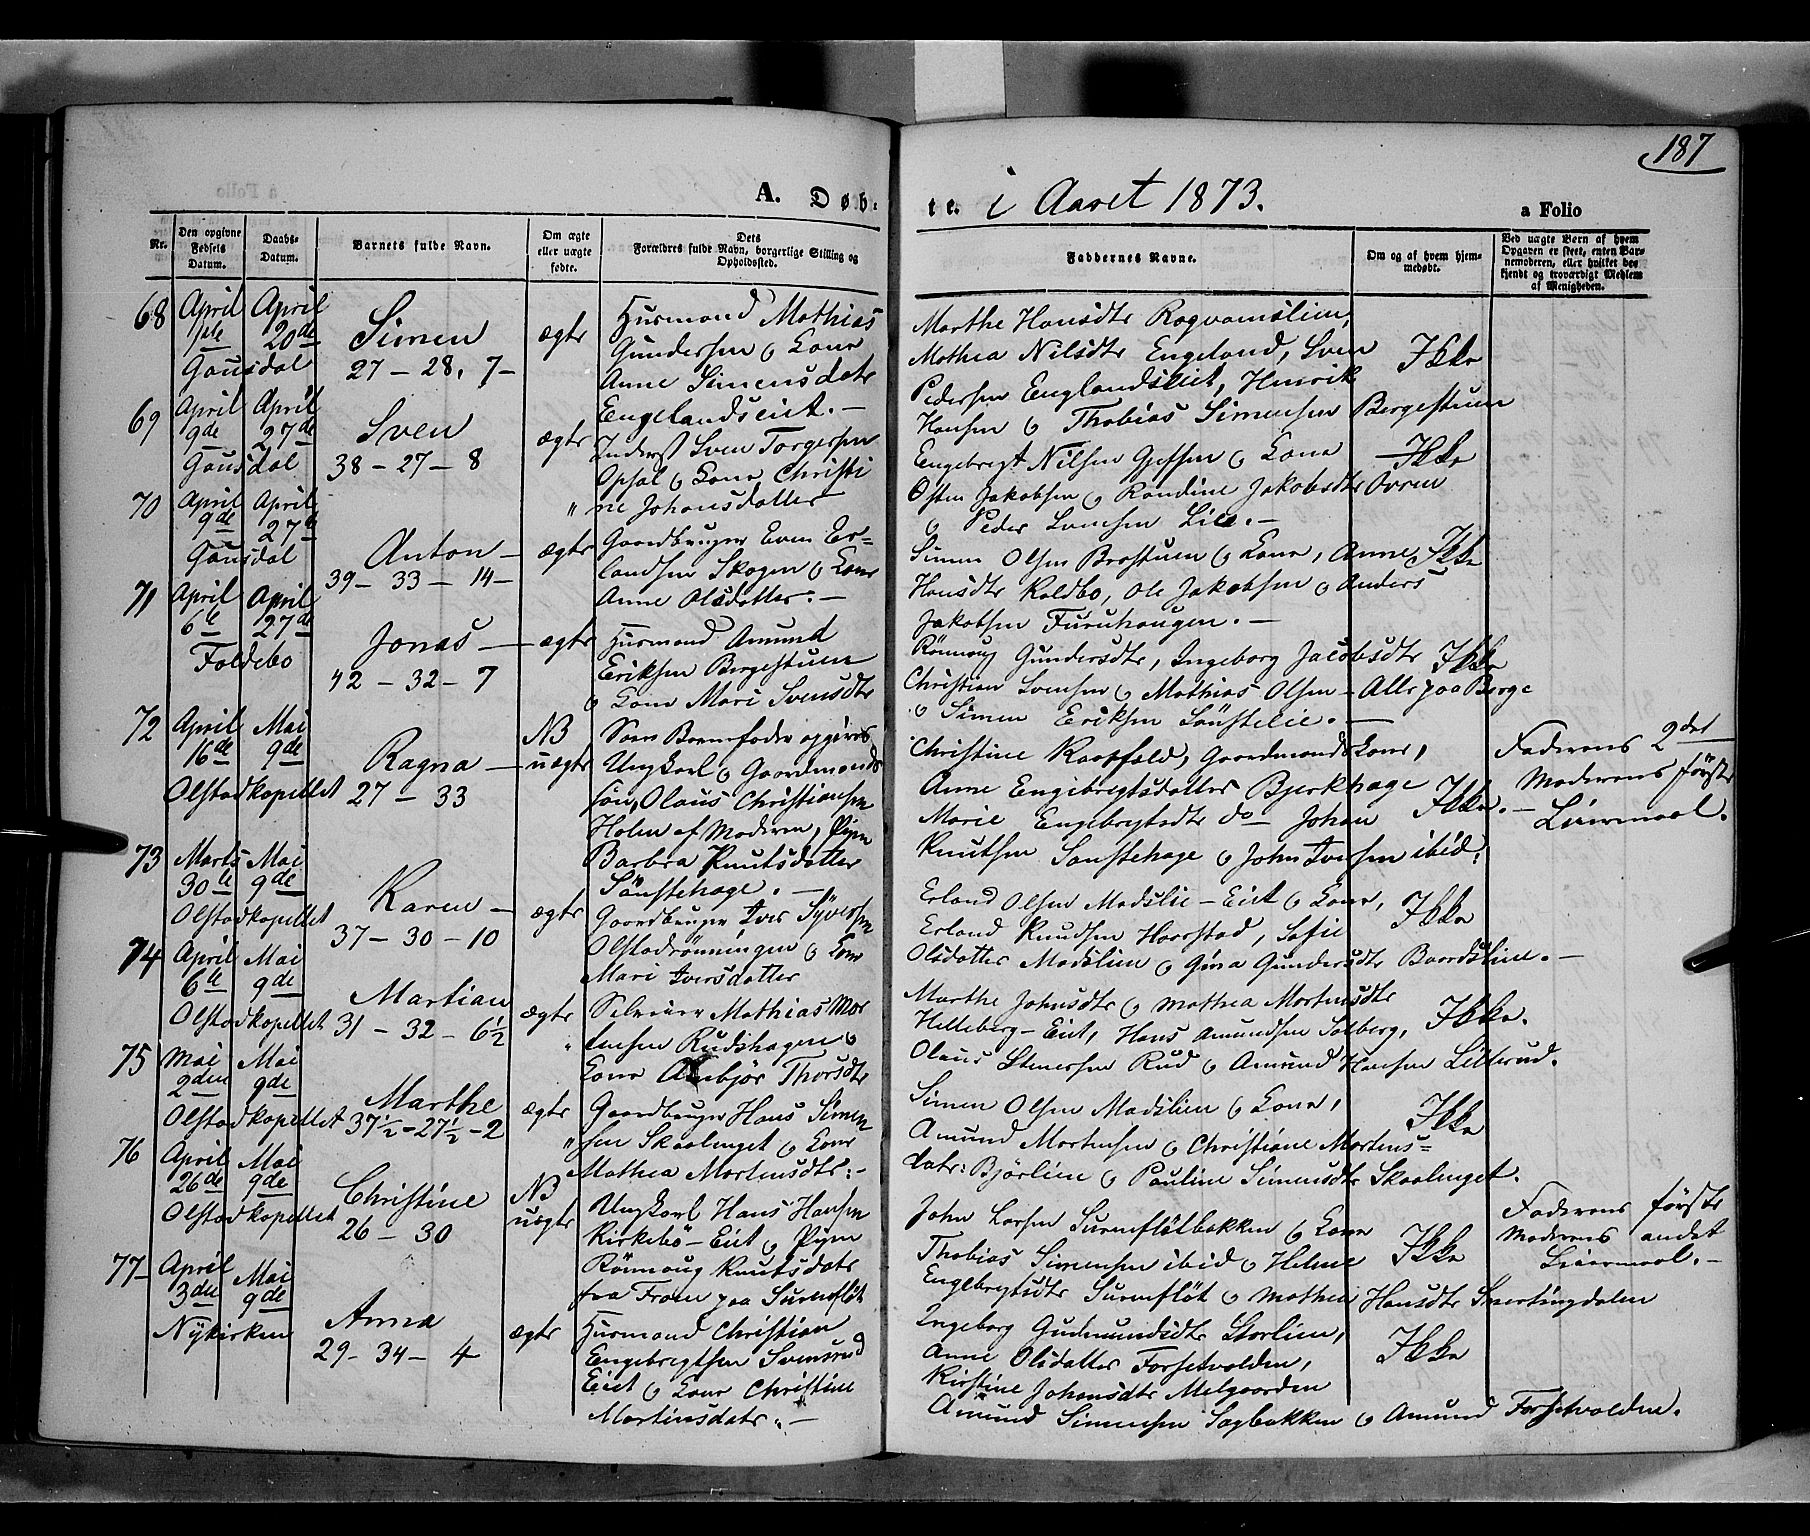 187
A. Døb-
te. i Aaret 1873.
a Folio
Nr.
Den opgivne Fødsels Datum.
Daabs-Datum.
Barnets fulde Navn.
Om ægte eller uægte fødte.
Dets Forældres fulde Navn, borgerlige Stilling og Opholdssted.
Faddernes Navne.
Om og af hvem hjemmedøbt.
Ved uægte Børn af hvem Opgaven er skeet, enten Barnemoderen, eller hvilket bekjendt og troværdigt Medlem af Menigheden.
68
April 1ste
April 20de
Gausdal
Simen
27 - 28. 7-
ægte
Husmand Mathias
Gundersen o Kone
Anne Simensdatr
Engelandseiet. -
Marthe Hansdtr Rogvamslien,
Mathea Nilsdtr Engeland, Sven
Pedersen Englandseiet, Henrik
Hansen o Thobias Simensen Bergestuen
Ikke
69
April 9de
April 27de
Gausdal
Sven
38 - 27 - 8
ægte
Inderst Sven Torgersen
Opsal o Kone Christi
" ne Johansdatter
Engebregt Nilsen Gjefsen o Kone
Osten Jakobsen o Randine Jakobsdtr Ovren
o Peder Svensen Lie. -
Ikke
70
April 9de
April 27de
Gausdal
Anton -
39 - 33 - 14 -
ægte
Gaardbruger Even Er=
landsen Skogen o Kone
Anne Olsdatter. -
Simen Olsen Brostuen o Kone, Anne
Hansdtr Koldbo, Ole Jakobsen o Anders
Jakobsen Furuhaugen. -
Ikke
71
April 6te
April 27de
Foldebo
Jonas -
42 - 32 - 7
ægte
Husmand Amund
Eriksen Bergestuen
o Kone Mari Svensdtr
Rönnoug Gundersdtr, Ingeborg Jacobsdtr
Christian Svensen o Mathias Olsen - Alle paa Berge
o Simen Eriksen Sönstelie. -
Ikke
72
April 16de
Mai 9de
Olstadkapellet
Ragna -
27 - 33
NB
uægte
Som Barnefader opgives
Ungkarl o Gaardmands
søn, Olaus Christiansen
Holen af Moderen, Pigen
Barbra Knutsdatter
Sönstehage. -
Christine Kaatfald, Gaardmandskone,
Anne Engebregtsdatter Bjerkhage
Marie Engebregtsdtr do - Johan
Knutsen Sönstehage o John Iversen ibid.
Ikke. -
Faderens 2det
Moderens første
Leiermaal.
73
Marts 30te
Mai 9de
Olstadkapellet
Karen -
37 - 30 - 10
ægte
Gaardbruger Iver Syversen
Olstadrönningen o Kone
Mari Iversdatter
Erland Olsen Madslie - Eiet o Kone,
Erland Knudsen Haarstad, Sofie
Olsdatter Madslien o Gina Gundersdtr Baardslien. -
Ikke
74
April 6te
Mai 9de
Olstadkapellet
Martian
31 - 32 - 6½
ægte
Selveier Mathias Mor
" tensen Rudshagen o
Kone Anbjør Thorsdtr
Marthe Johnsdtr o Mathea Mortensdtr
Helleberg - Eiet, Hans Amundsen Solberg,
Olaus Stenersen Rud o Amund Hansen Lillerud.
Ikke.
75
Mai 2den
Mai 9de
Olstadkapellet
Marthe
37½ - 27½ - 2
ægte
Gaardbruger Hans Simen
" sen Skaalenget o Kone
Mathea Mortensdtr. -
Simen Olsen Madslien o Kone,
Amund Mortensen o Christiane Mortens=
datr: Bjørlien o Pauline Simensdtr Skaalenget.
Ikke
76
April 26de
Mai 9de
Olstadkapellet
Christine
26 - 30
NB
uægte
Ungkarl Hans Hansen
Kirkebö - Eiet o Pigen
Rönnoug Knutsdatr
fra Fron paa Surenflöt
John Larsen Surenflötbakken o Kone
Thobias Simensen ibid o Helene
Engebregtsdtr Surenflöt o Mathea Hansdtr Svertingdalen
Ikke
Faderens første
Moderens andet
Leiermaal. -
77-
April 3die
Mai 9de
Nykirken
Anna
29 - 34 - 4
ægte
Husmand Christian
Engebregtsen Svensrud
Eiet o Kone Christine
Martinsdatr. -
Ingeborg Gudmundsdtr Storlien,
Anne Olsdatter Forsetvolden,
Kirstine Johansdtr Melgaarden
Amund Simensen Sagbakken o Amund Forsetvolden.
Ikke